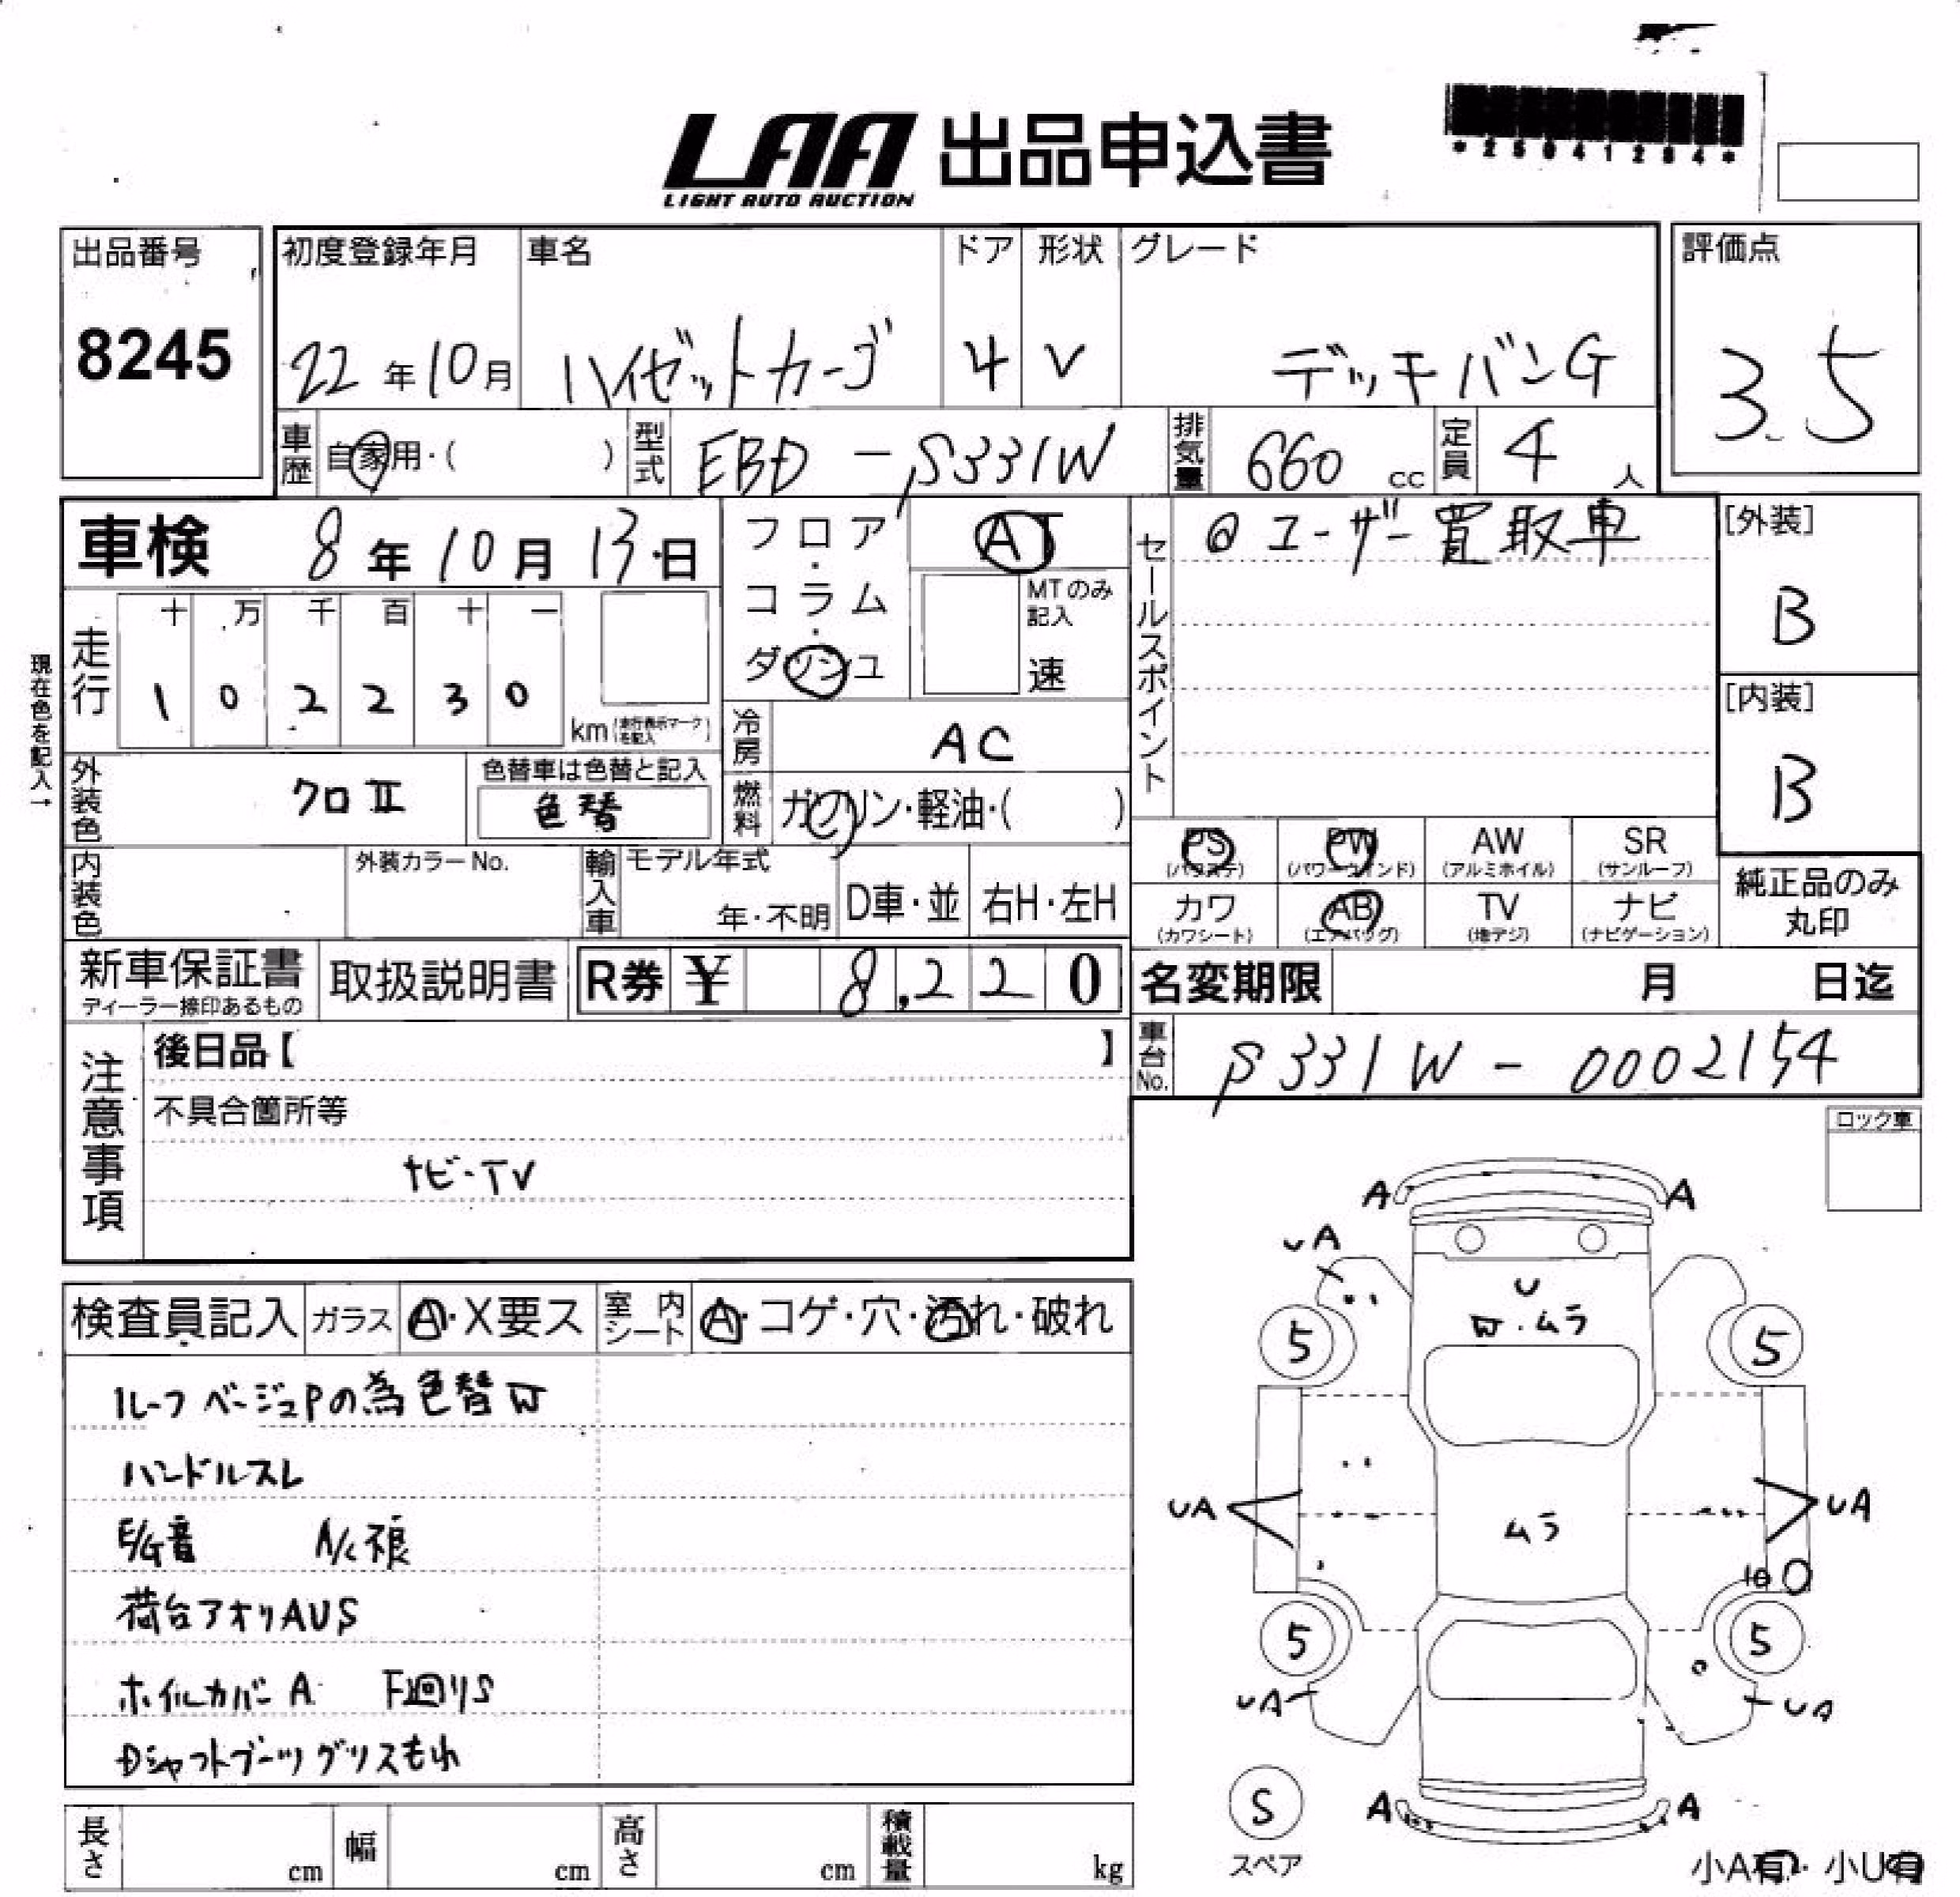 LAA 出品申込書
LIGHT AUTO AUCTION
*25041234*
出品番号
8245
初度登録年月
22年10月
車名
ハイゼットカーゴ
ドア
4
形状
V
グレード
デッキバンG
評価点
3.5
車歴 自家用・( )
型式 EBD-S331W
排気量 660 cc
定員 4 人
車検 8年10月13日
フロア・コラム・ダッシュ
AT
MTのみ記入
速
セールスポイント
@ユーザー買取車
[外装]
B
現在色を記入→
走行
十 万 千 百 十 一
1 0 2 2 3 0
km(走行表示マークを記入)
[内装]
B
冷房 AC
外装色 クロⅡ
色替車は色替と記入
色替
燃料 ガソリン・軽油・( )
PS
(パワステ)
PW
(パワーウインド)
AW
(アルミホイル)
SR
(サンルーフ)
内装色
外装カラーNo.
輸入車
モデル年式
年・不明
D車・並
右H・左H
カワ
(カワシート)
AB
(エアバッグ)
TV
(地デジ)
ナビ
(ナビゲーション)
純正品のみ
丸印
新車保証書
ディーラー捺印あるもの
取扱説明書
R券 ¥ 8,220
名変期限 月 日迄
車台No. S331W-0002154
注意事項
後日品【 】
不具合箇所等
ナビ・TV
ロック車
検査員記入
ガラス A・X要ス
室内シート A・コゲ・穴・汚れ・破れ
ルーフ ベージュPの為色替W
ハンドルスレ
E/G音 A/C不良
荷台アオリAUS
ホイルカバーA F廻りS
Dシャフトブーツグリスもれ
A A
UA
U
W・ムラ
5 5
UA UA
ムラ
5 5
UA UA
S
スペア
A A
小A有・小U有
長さ cm
幅 cm
高さ cm
積載量 kg